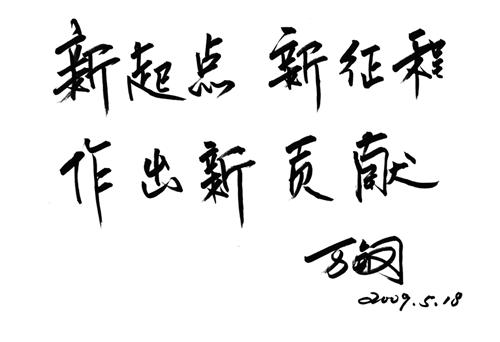 新起点 新征程
作出新贡献
2009.5.18